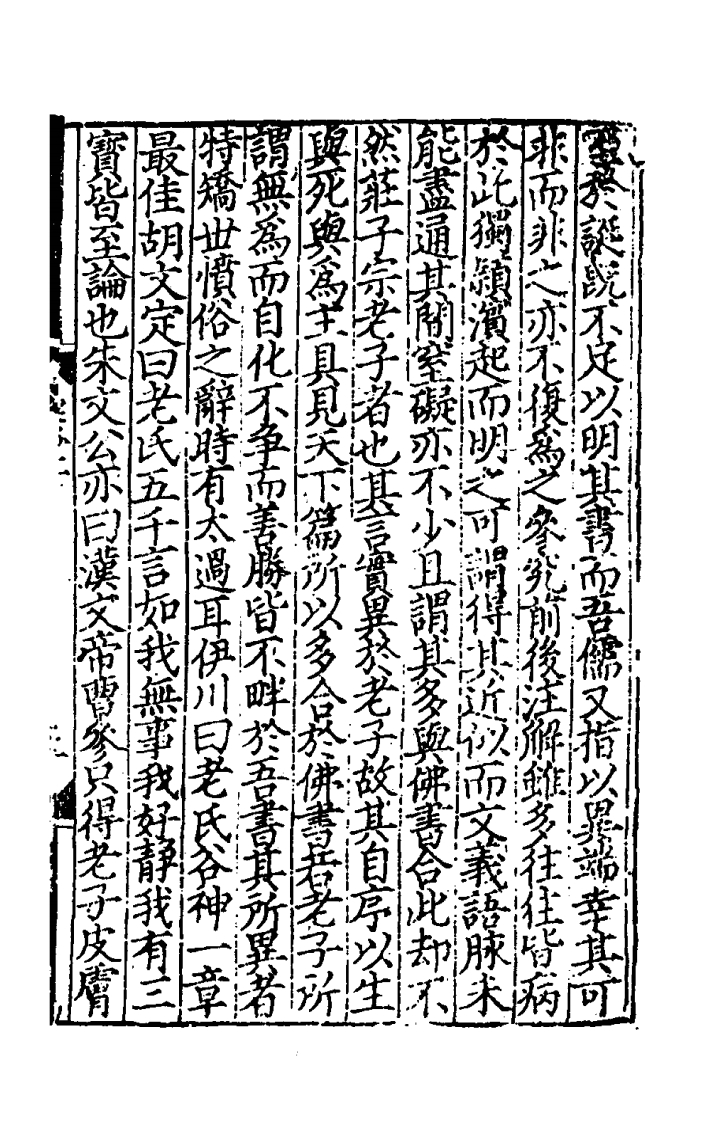 空於誕既不足以明其書而吾儒又指以異端幸其可
非而非之亦不復為之參究前後注解雖多往往皆病
於此獨潁濱起而明之可謂得其近似而文義語脉未
能盡通其間窒礙亦不少且謂其多與佛書合此却不
然莊子宗老子者也其言實異於老子故其自序以生
與死與為主具見天下篇所以多合於佛書若老子所
謂無為而自化不争而善勝皆不畔於吾書其所異者
特矯世憤俗之辭時有太過耳伊川曰老氏谷神一章
最佳胡文定曰老氏五千言如我無事我好靜我有三
寶皆至論也朱文公亦曰漢文帝曹參只得老子皮膚